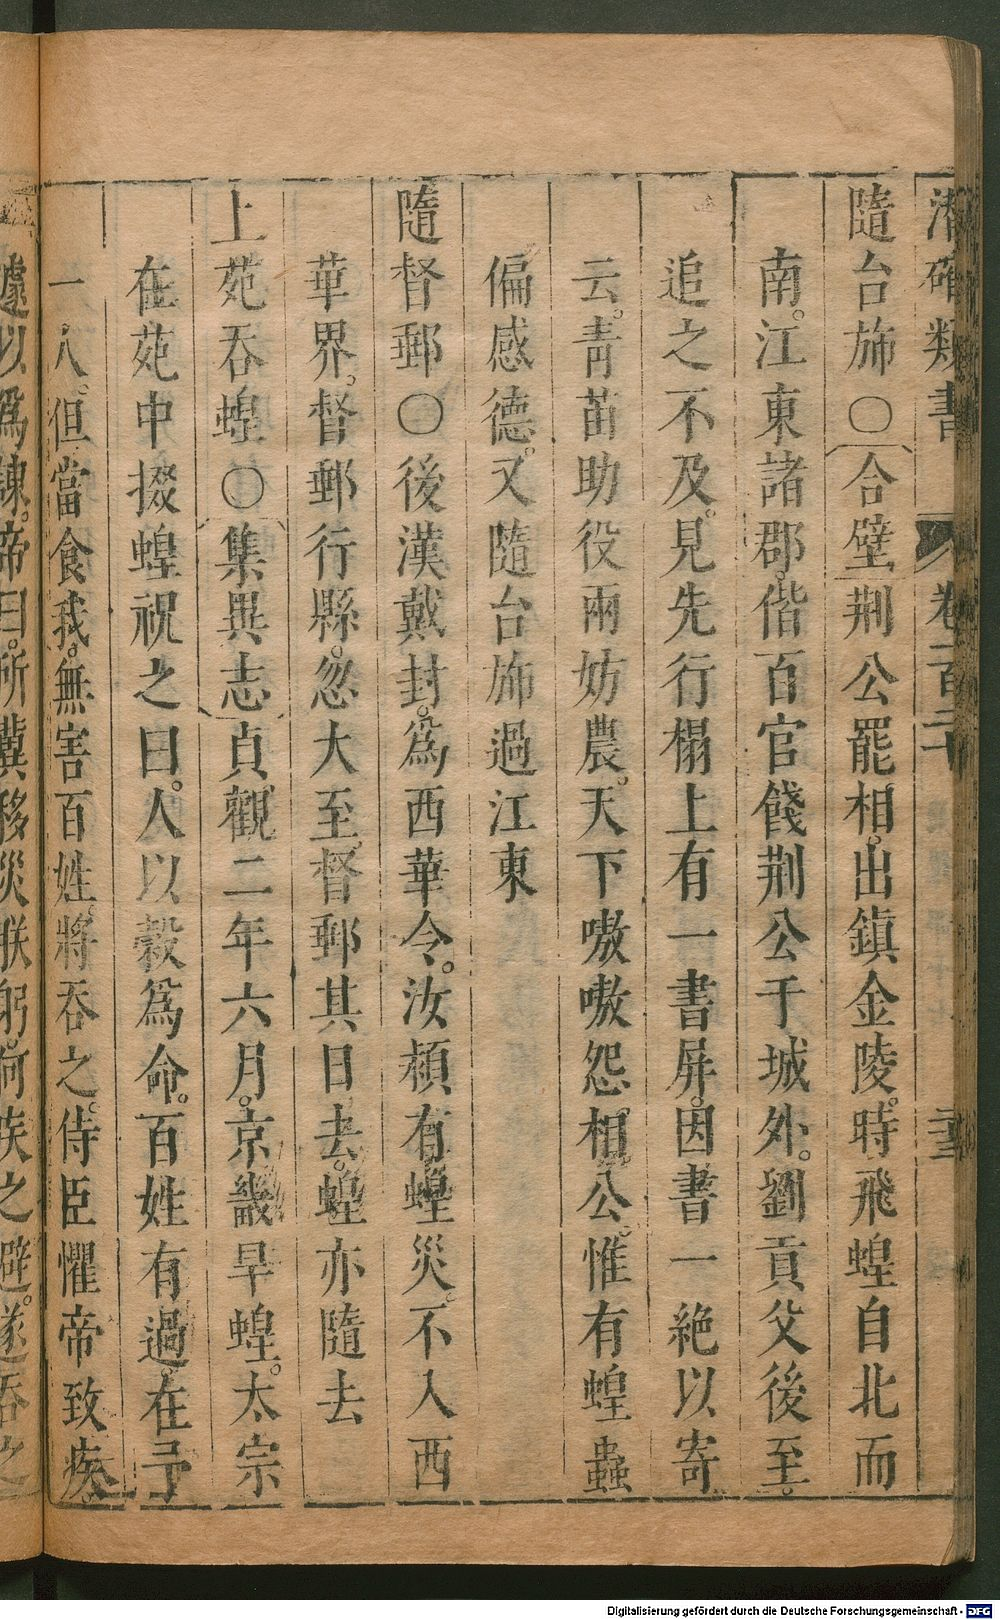 潛確類書 卷一百二十
隨台旆○合璧荆公罷相。出鎮金陵。時飛蝗自北而
南。江東諸郡。偕百官餞荆公于城外。劉貢父後至。
追之不及。見先行榻上有一書屏。因書一絶以寄
云。青苗助役兩妨農。天下嗷嗷怨相公。惟有蝗蟲
偏感德。又隨台旆過江東
隨督郵○後漢戴封。爲西華令。汝頴有蝗災。不入西
華界。督郵行縣。忽大至。督郵其日去。蝗亦隨去
上苑吞蝗○集異志貞觀二年六月。京畿旱蝗。太宗
在苑中掇蝗祝之曰。人以穀爲命。百姓有過。在予
一人。但當食我。無害百姓。將吞之。侍臣懼帝致疾。
遽以爲諫。帝曰。所冀移災朕躬。何疾之避。遂吞之
Digitalisierung gefördert durch die Deutsche Forschungsgemeinschaft - DFG